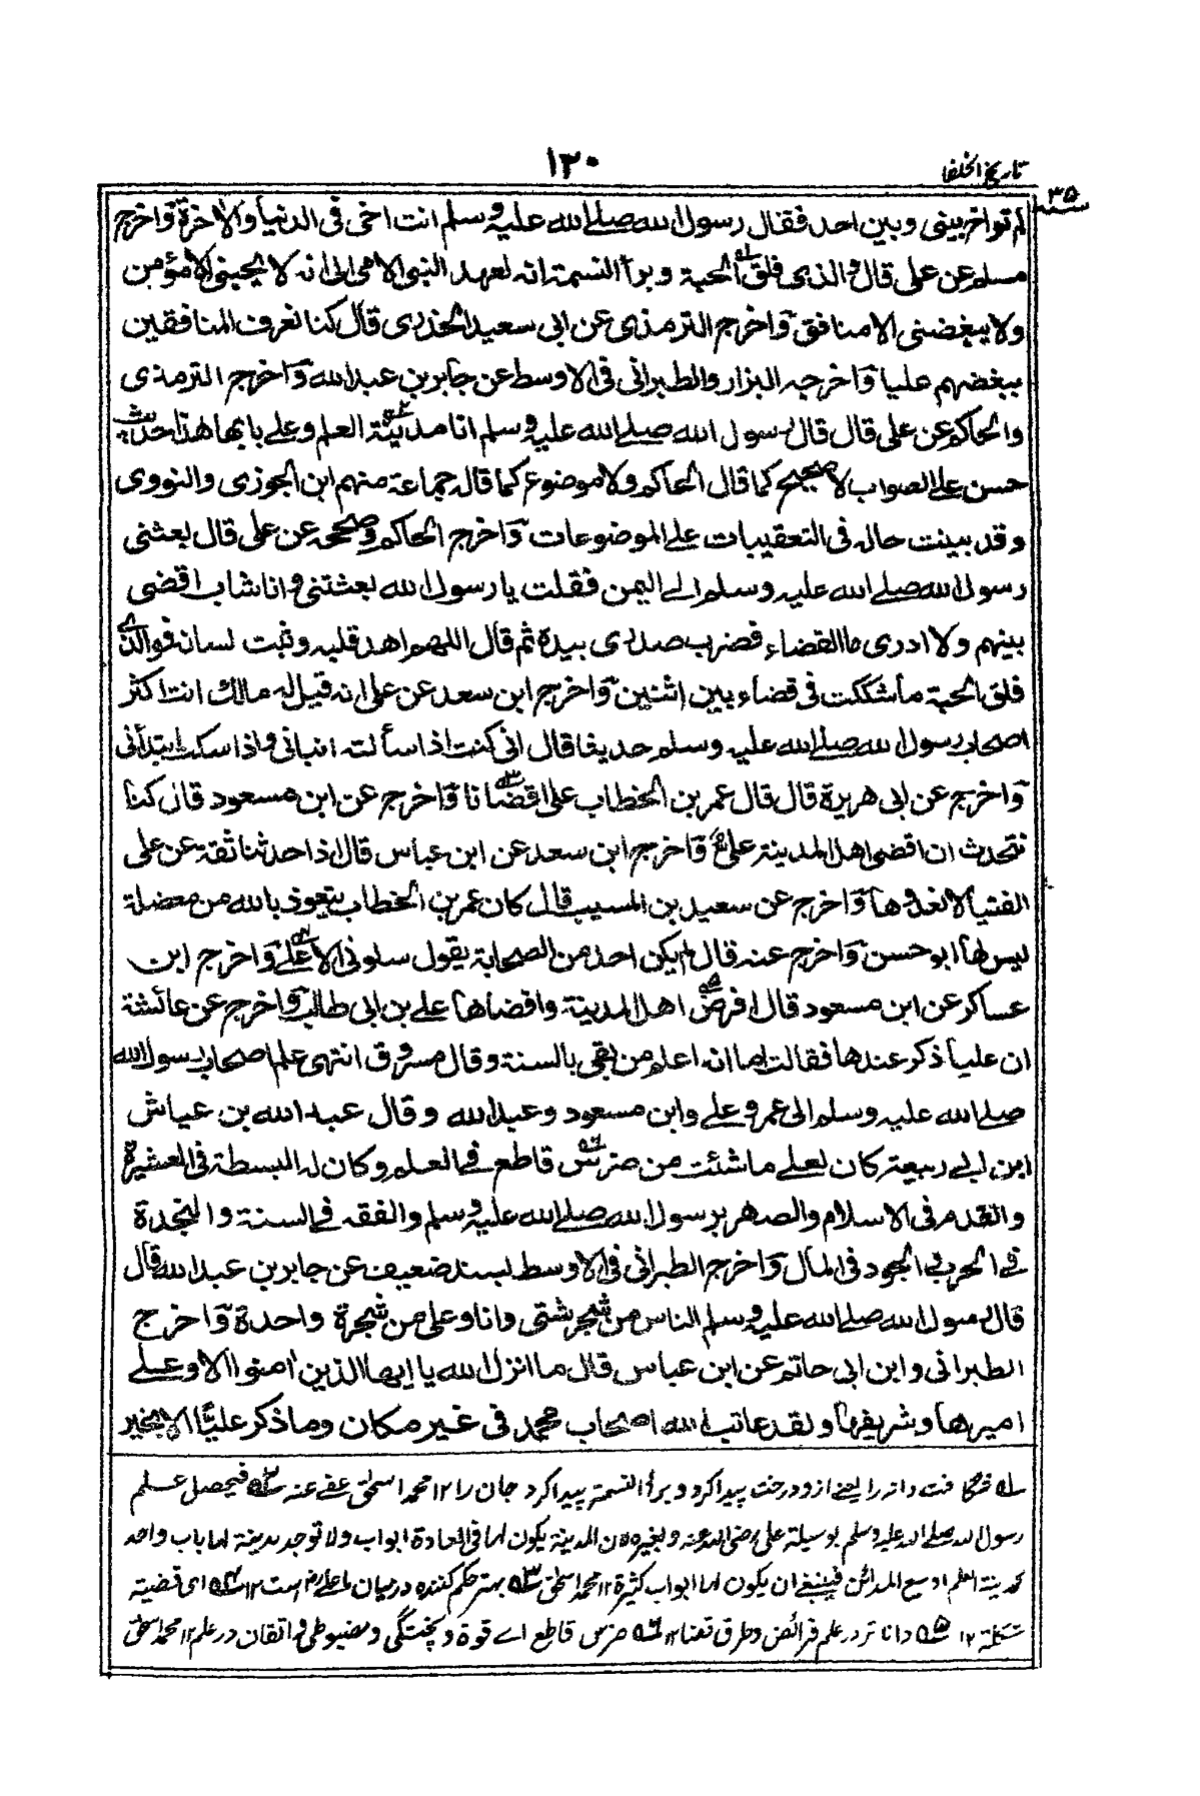 تاریخ الخلفا
١٢٠
سنه ٣٥
لم تواخ بينى وبين احد فقال رسول الله صلے الله عليه وسلم انت اخى فى الدنيا والاخرة وَاخرج
مسلم عن على قال والذى فلق الحبة وبرأ النسمة انه لعهد النبى الامى الى انه لا يحبنى الا مؤمن
ولا يبغضنى الا منافق وَاخرج الترمذى عن ابى سعيد الخدرى قال كنا نعرف المنافقين
ببغضهم عليا وَاخرجه البزار والطبرانى فى الاوسط عن جابر بن عبد الله وَاخرج الترمذى
والحاكم عن على قال قال رسول الله صلے الله عليه وسلم انا مدينة العلم وعلے بابها هذا حديث
حسن علے الصواب لا صحيح كما قال الحاكم ولا موضوع كما قاله جماعة منهم ابن الجوزى والنووى
وقد بينت حاله فى التعقيبات علے الموضوعات وَاخرج الحاكم وصححه عن على قال بعثنى
رسول الله صلے الله عليه وسلم الے اليمن فقلت يا رسول الله بعثتنى وانا شاب اقضى
بينهم ولا ادرى ما القضاء فضرب صدرى بيده ثم قال اللهم اهد قلبه وثبت لسانه فوالذى
فلق الحبة ما شككت فى قضاء بين اثنين وَاخرج ابن سعد عن على انه قيل له مالك انت اكثر
اصحاب رسول الله صلے الله عليه وسلم حديثا قال انى كنت اذا سألته انبانى واذا سكت ابتدأنى
وَاخرج عن ابى هريرة قال قال عمر بن الخطاب على اقضانا وَاخرج عن ابن مسعود قال كنا
نتحدث ان اقضى اهل المدينة على وَاخرج ابن سعد عن ابن عباس قال اذا حدثنا ثقة عن على
الفتيا لا نعدوها وَاخرج عن سعيد بن المسيب قال كان عمر بن الخطاب يتعوذ بالله من معضلة
ليس لها ابو حسن وَاخرج عنه قال لم يكن احد من الصحابة يقول سلونى الا علے وَاخرج ابن
عساكر عن ابن مسعود قال افرض اهل المدينة واقضاها علے بن ابى طالب وَاخرج عن عائشة
ان عليا ذكر عندها فقالت اما انه اعلم من بقى بالسنة وقال مسروق انتهى علم اصحاب رسول الله
صلے الله عليه وسلم الى عمر وعلے وابن مسعود وعبد الله وقال عبد الله بن عياش
ابن ابے ربيعة كان لعلے ما شئت من ضرس قاطع فے العلم وكان له البسطة فى العشيرة
والقدم فى الاسلام والصهر برسول الله صلے الله عليه وسلم والفقه فے السنة والنجدة
فے الحرب والجود فى المال وَاخرج الطبرانى فى الاوسط بسند ضعيف عن جابر بن عبد الله قال
قال رسول الله صلے الله عليه وسلم الناس من شجر شتى وانا وعلى من شجرة واحدة وَاخرج
الطبرانى وابن ابى حاتم عن ابن عباس قال ما انزل الله يا ايها الذين امنوا الا وعلے
اميرها وشريفها ولقد عاتب الله اصحاب محمد فى غير مكان وما ذكر عليًّا الا بخير
سله شگافت دانه را یعنے ازو درخت پیدا کرد و برأ النسمة پیدا کرد جان را ١٢ محمد اسحٰق عفے عنه سله فيحصل علم
رسول الله صلے الله عليه وسلم بوسيلة على رضى الله عنه وبغيره لان المدينة يكون لها فى العادة ابواب ولا توجد مدينة لها باب واحد
مدينة العلم اوسع المدائن فينبغے ان يكون لها ابواب كثيرة ١٢ محمد اسحٰق سله بهتر حکم کننده درمیان ما علے است ١٢ سله اى قضية
مشكلة ١٢ سله داناتر در علم فرائض وطرق قضا ١٢ سله ضرس قاطع اے قوة و پختگی و مضبوطی و اتقان در علم ١٢ محمد اسحٰق